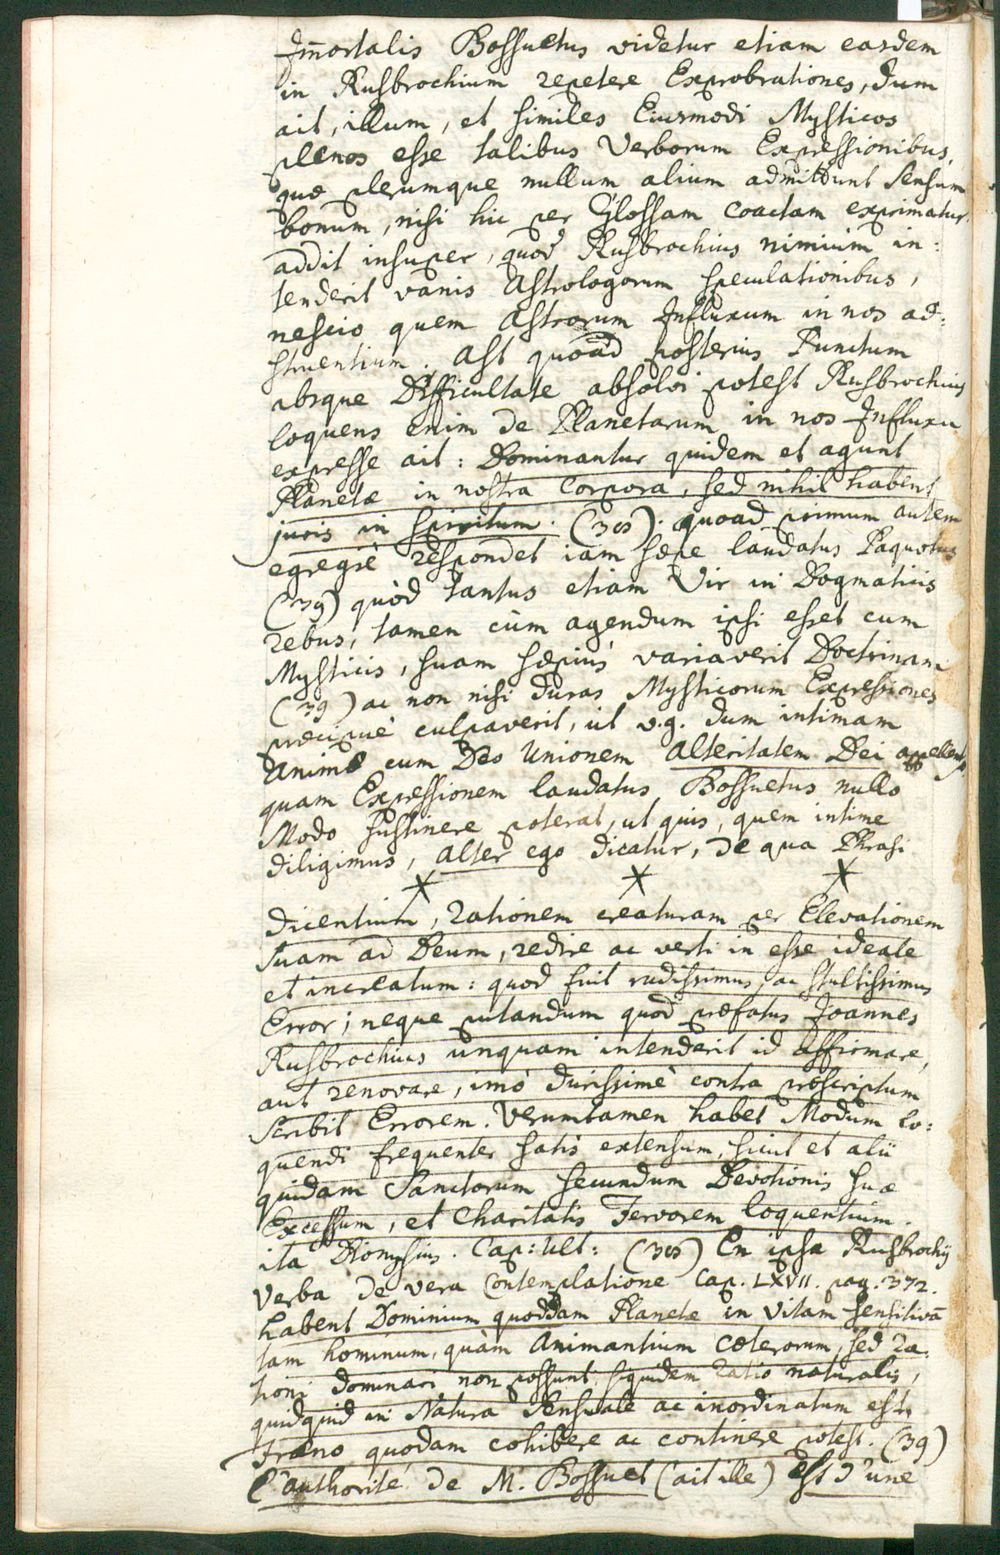 Im̄ortalis Bossuetus videtur etiam easdem
in Rusbrochium repetere Exprobrationes, dum
ait, illum, et similes Eiusmodi Mysticos
plenos esse talibus Verborum Expressionibus,
quæ plerumque nullum alium admittunt Sensum
bonum, nisi hic per Glossam coactam exprimatur.
addit insuper, quod Rusbrochius nimium in:
tenderit vanis Astrologorum speculationibus,
nescio quem Astrorum Influxum in nos ad:
struentium. Ast quoad posterius Punctum
absque Difficultate absolvi potest Rusbrochius
loquens enim de Planetarum in nos Influxu
expresse ait: Dominantur quidem et agunt
Planetæ in nostra Corpora, sed nihil habent
juris in spiritum. (38). quoad primum autem
egregiè respondet iam sæpe laudatus Paquotus
(39) quòd tantus etiam Vir in Dogmaticis
rebus, tamen cùm agendum ipsi esset cum
Mysticis, suam sæpiùs variaverit Doctrinam
(39) ac non nisi duras Mysticorum Expressiones
præcipuè culpaverit, ut v.g. dum intimam
Animæ cum Deo Unionem Alteritatem Dei appellent,
quam Expressionem laudatus Bossuetus nullo
Modo sustinere poterat, ut quis, quem intime
diligimus, alter ego dicatur, de qua Phrasi
dicentium, rationem creaturam per Elevationem
suam ad Deum, redire ac verti in esse ideale
et increatum: quod fuit rudissimus, ac stultissimus
Error; neque putandum quod præfatus Joannes
Rusbrochius unquam intenderit id affirmare,
aut renovare, imò durissimè contra proscriptum
scribit Errorem. Verumtamen habet Modum lo:
quendi frequenter satis extensum, sicut et alii
quidam Sanctorum secundum Devotionis suæ
Excessum, et Charitatis Fervorem loquentium.
ita Dionysius. Cap: ult: (38) En ipsa Rusbrochij
Verba de vera Contemplatione Cap. LXVII. pag. 372.
habent Dominium quoddam Planetæ in Vitam sensitivā
tam hominum, quàm Animantium cæterorum, sed ra:
tioni dominari non possunt, siquidem ratio naturalis,
quidquid in Natura Sensuale ac inordinatum est,
fræno quodam cohibere ac continere potest. (39)
L'authorité de M. Bossuet (ait ille) est d'une